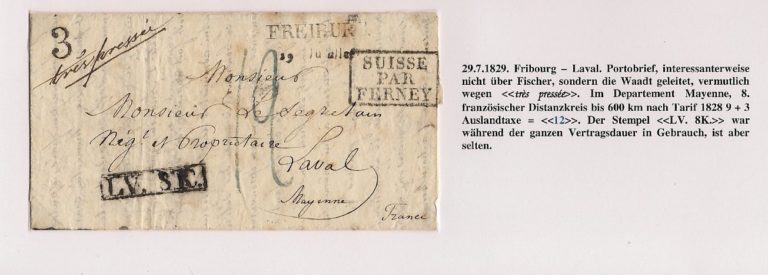 3
très pressée
FREIBURG
29 Juillet
SUISSE
PAR
FERNEY
12
Monsieur
Monsieur Le Segretain
Négt et Propriétaire
Laval
Mayenne
France
LV. 8K.
29.7.1829. Fribourg – Laval. Portobrief, interessanterweise
nicht über Fischer, sondern die Waadt geleitet, vermutlich
wegen <<très pressée>>. Im Departement Mayenne, 8.
französischer Distanzkreis bis 600 km nach Tarif 1828 9 + 3
Auslandtaxe = <<12>>. Der Stempel <<LV. 8K.>> war
während der ganzen Vertragsdauer in Gebrauch, ist aber
selten.